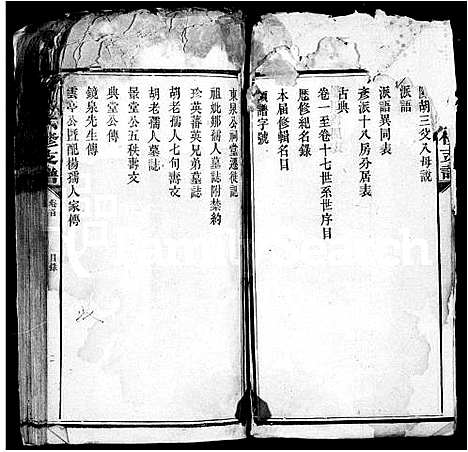 胡三父八母說
派語
派語異同表
彥派十八房分居表
古典
卷一至卷十七世系世序目
歷修紀名錄
本届修輯名目
領譜字號
東泉公祠堂遷徙記
祖妣鄭孺人墓誌附禁約
珍英蕃英兄弟墓誌
胡老孺人七旬壽文
胡老孺人墓誌
景堂公五秩壽文
典堂公傳
鏡泉先生傳
雲亭公暨配楊孺人家傳
修支譜
卷首
目錄
FamilySearch